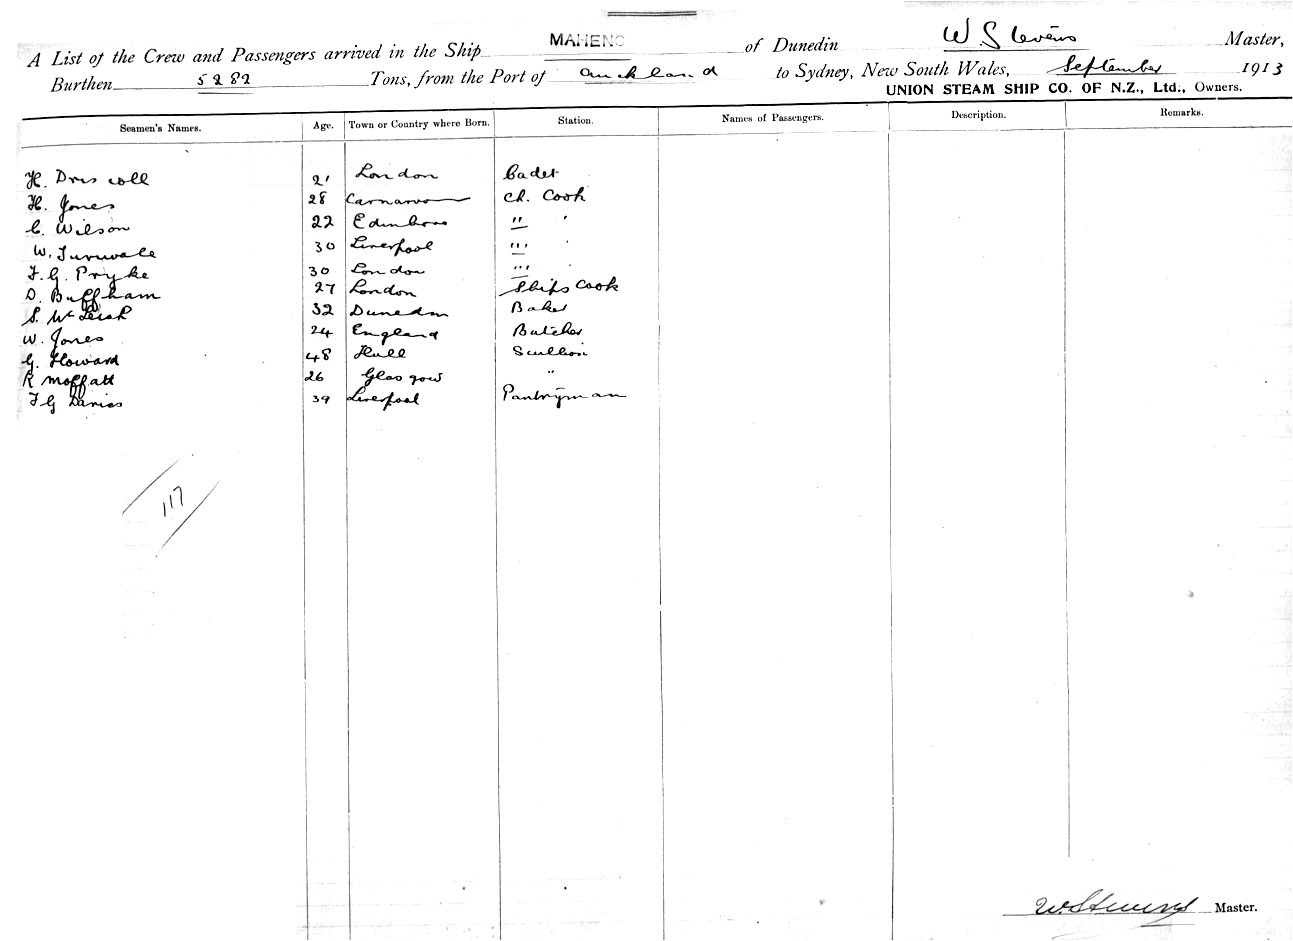 A List of the Crew and Passengers arrived in the Ship MAHENO of Dunedin W Stevens Master,
Burthen 5282 Tons, from the Port of Auckland to Sydney, New South Wales, September 1913
UNION STEAM SHIP CO. OF N.Z., Ltd., Owners.
Seamen's Names. Age. Town or Country where Born. Station. Names of Passengers. Description. Remarks.
H. Driscoll 21 London Cadet
H. Jones 28 Carnarvon Ch. Cook
C. Wilson 22 Edinboro " "
W. 30 Liverpool "" "
F. G. Pryke 30 London "" "
D. Buffham 27 London Ships Cook
S. McLeish 32 Dunedin Baker
W. Jones 24 England Butcher
G. Howard 48 Hull Scullion
R Moffatt 26 Glasgow "
F G Davies 39 Liverpool Pantryman
117
W. Stevens Master.